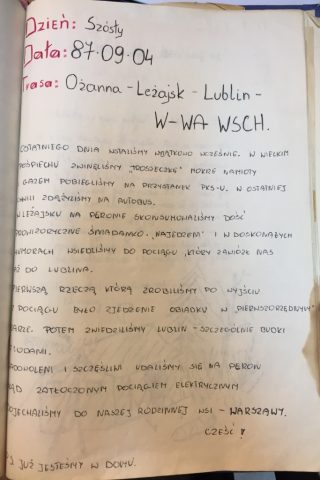 Dzień: Szósty
Data: 87.09.04
Trasa: Ożanna - Leżajsk - Lublin -
W-WA WSCH.
OSTATNIEGO DNIA WSTALIŚMY WYJĄTKOWO WCZEŚNIE. W WIELKIM
POŚPIECHU ZWINĘLIŚMY "TROSZECZKĘ" MOKRE NAMIOTY
GAZEM POBIEGLIŚMY NA PRZYSTANEK PKS-U. W OSTATNIEJ
CHWILI ZDĄŻYLIŚMY NA AUTOBUS.
W LEŻAJSKU NA PERONIE SKONSUMOWALIŚMY DOŚĆ
PROWIZORYCZNE ŚNIADANKO. "NAJEDZENI" I W DOSKONAŁYCH
HUMORACH WSIEDLIŚMY DO POCIĄGU, KTÓRY ZAWIÓZŁ NAS
AŻ DO LUBLINA.
PIERWSZĄ RZECZĄ KTÓRĄ ZROBILIŚMY PO WYJŚCIU
Z POCIĄGU BYŁO ZJEDZENIE OBIADKU W "PIERWSZORZĘDNYM"
BARZE. POTEM ZWIEDZILIŚMY LUBLIN - SZCZEGÓLNIE BUDKI
Z LODAMI.
ZADOWOLENI I SZCZĘŚLIWI UDALIŚMY SIĘ NA PERON
SKĄD ZATŁOCZONYM POCIĄGIEM ELEKTRYCZNYM
DOJECHALIŚMY DO NASZEJ RODZINNEJ WSI - WARSZAWY.
CZEŚĆ!
I JUŻ JESTEŚMY W DOMU.